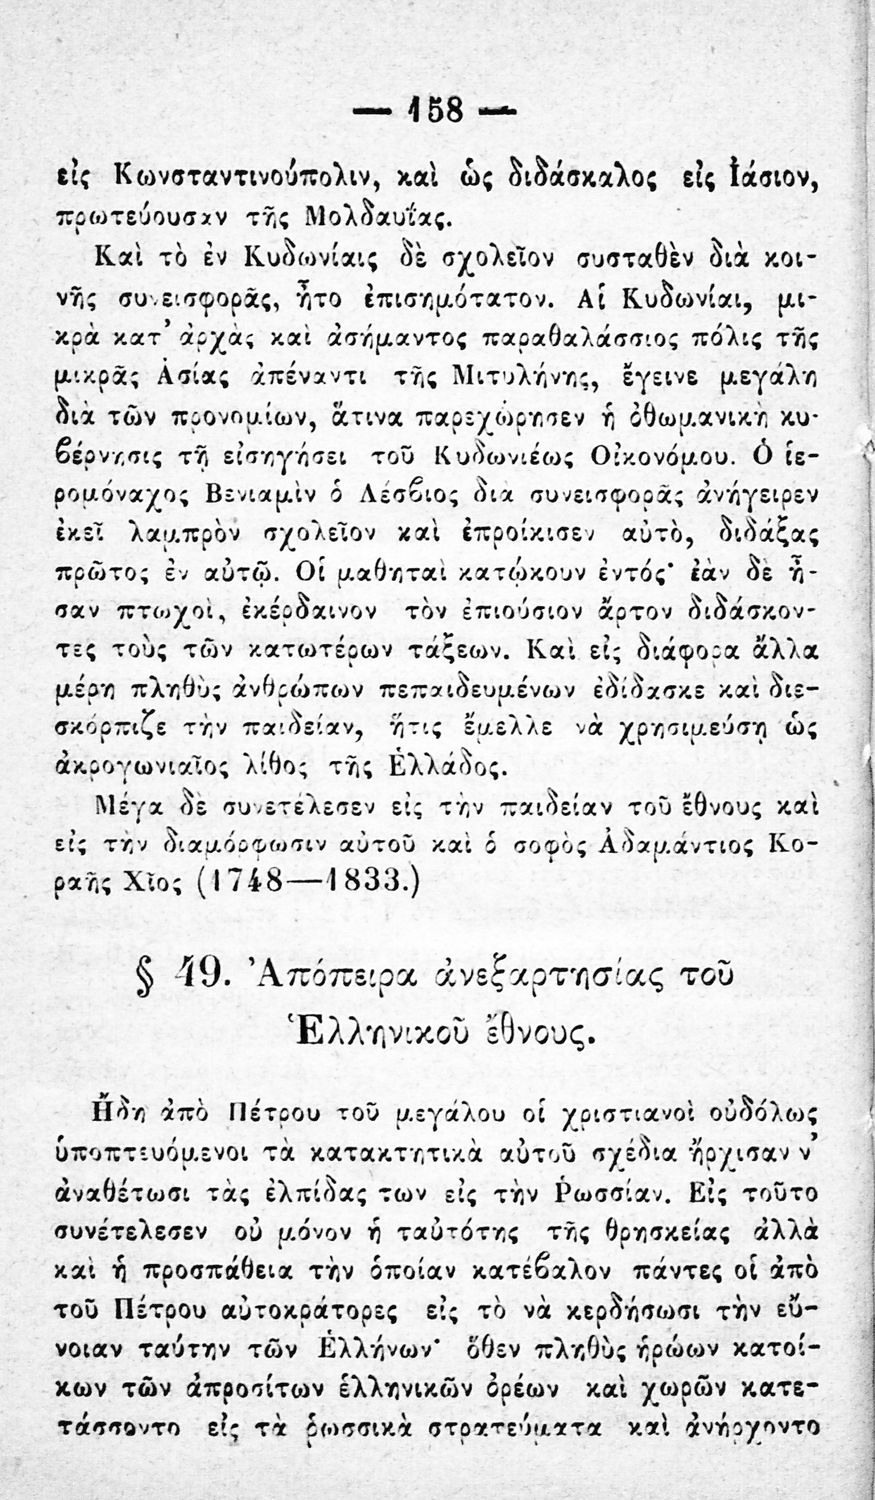 — 158 —
εἰς Κωνσταντινούπολιν, καὶ ὡς διδάσκαλος εἰς Ἰάσιον,
πρωτεύουσαν τῆς Μολδαυΐας.
Καὶ τὸ ἐν Κυδωνίαις δὲ σχολεῖον συσταθὲν διὰ κοι-
νῆς συνεισφορᾶς, ἦτο ἐπισημότατον. Αἱ Κυδωνίαι, μι-
κρὰ κατ’ ἀρχὰς καὶ ἀσήμαντος παραθαλάσσιος πόλις τῆς
μικρᾶς Ἀσίας ἀπέναντι τῆς Μιτυλήνης, ἔγεινε μεγάλη
διὰ τῶν προνομίων, ἅτινα παρεχώρησεν ἡ ὀθωμανικὴ κυ-
βέρνησις τῇ εἰσηγήσει τοῦ Κυδωνιέως Οἰκονόμου. Ὁ ἱε-
ρομόναχος Βενιαμὶν ὁ Λέσβιος διὰ συνεισφορᾶς ἀνήγειρεν
ἐκεῖ λαμπρὸν σχολεῖον καὶ ἐπροίκισεν αὐτὸ, διδάξας
πρῶτος ἐν αὐτῷ. Οἱ μαθηταὶ κατῴκουν ἐντός· ἐὰν δὲ ἦ-
σαν πτωχοὶ, ἐκέρδαινον τὸν ἐπιούσιον ἄρτον διδάσκον-
τες τοὺς τῶν κατωτέρων τάξεων. Καὶ εἰς διάφορα ἄλλα
μέρη πληθὺς ἀνθρώπων πεπαιδευμένων ἐδίδασκε καὶ διε-
σκόρπιζε τὴν παιδείαν, ἥτις ἔμελλε νὰ χρησιμεύσῃ ὡς
ἀκρογωνιαῖος λίθος τῆς Ἑλλάδος.
Μέγα δὲ συνετέλεσεν εἰς τὴν παιδείαν τοῦ ἔθνους καὶ
εἰς τὴν διαμόρφωσιν αὐτοῦ καὶ ὁ σοφὸς Ἀδαμάντιος Κο-
ραῆς Χῖος (1748—1833.)
§ 49. Ἀπόπειρα ἀνεξαρτησίας τοῦ
Ἑλληνικοῦ ἔθνους.
Ἤδη ἀπὸ Πέτρου τοῦ μεγάλου οἱ χριστιανοὶ οὐδόλως
ὑποπτευόμενοι τὰ κατακτητικὰ αὐτοῦ σχέδια ἤρχισαν ν’
ἀναθέτωσι τὰς ἐλπίδας των εἰς τὴν Ῥωσσίαν. Εἰς τοῦτο
συνέτελεσεν οὐ μόνον ἡ ταὐτότης τῆς θρησκείας ἀλλὰ
καὶ ἡ προσπάθεια τὴν ὁποίαν κατέβαλον πάντες οἱ ἀπὸ
τοῦ Πέτρου αὐτοκράτορες εἰς τὸ νὰ κερδήσωσι τὴν εὔ-
νοιαν ταύτην τῶν Ἑλλήνων· ὅθεν πληθὺς ἡρώων κατοί-
κων τῶν ἀπροσίτων ἑλληνικῶν ὀρέων καὶ χωρῶν κατε-
τάσσοντο εἰς τὰ ῥωσσικὰ στρατεύματα καὶ ἀνήρχοντο